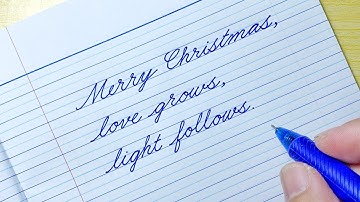 Merry Christmas,
love grows,
light follows.